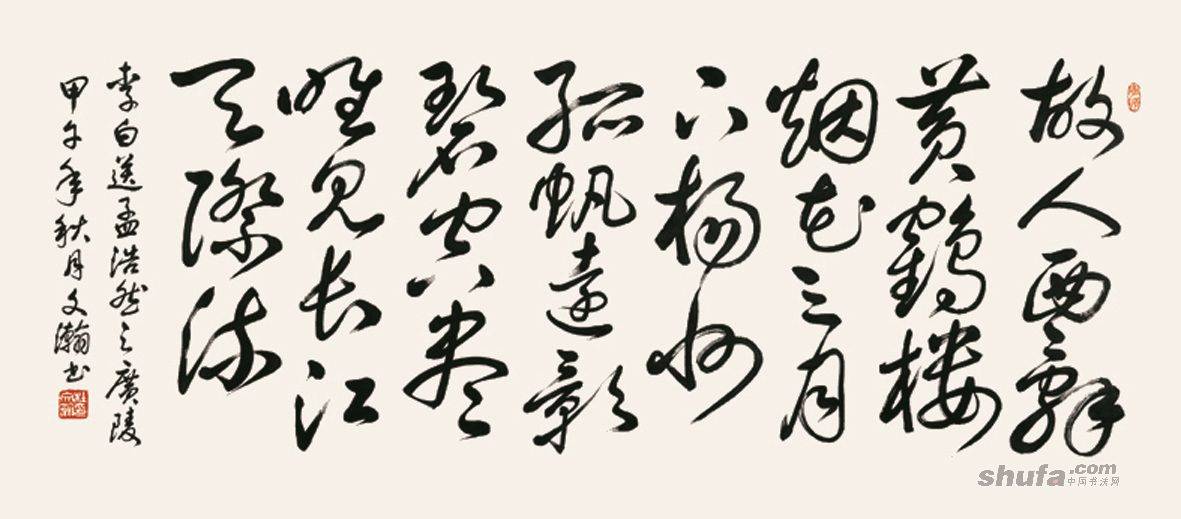 故人西辞
黄鶴楼
烟花三月
下楊州
孤帆遠影
碧空尽
唯见长江
天際流
李白送孟浩然之廣陵
甲午年秋月文瀚书
shufa.com
中国书法网